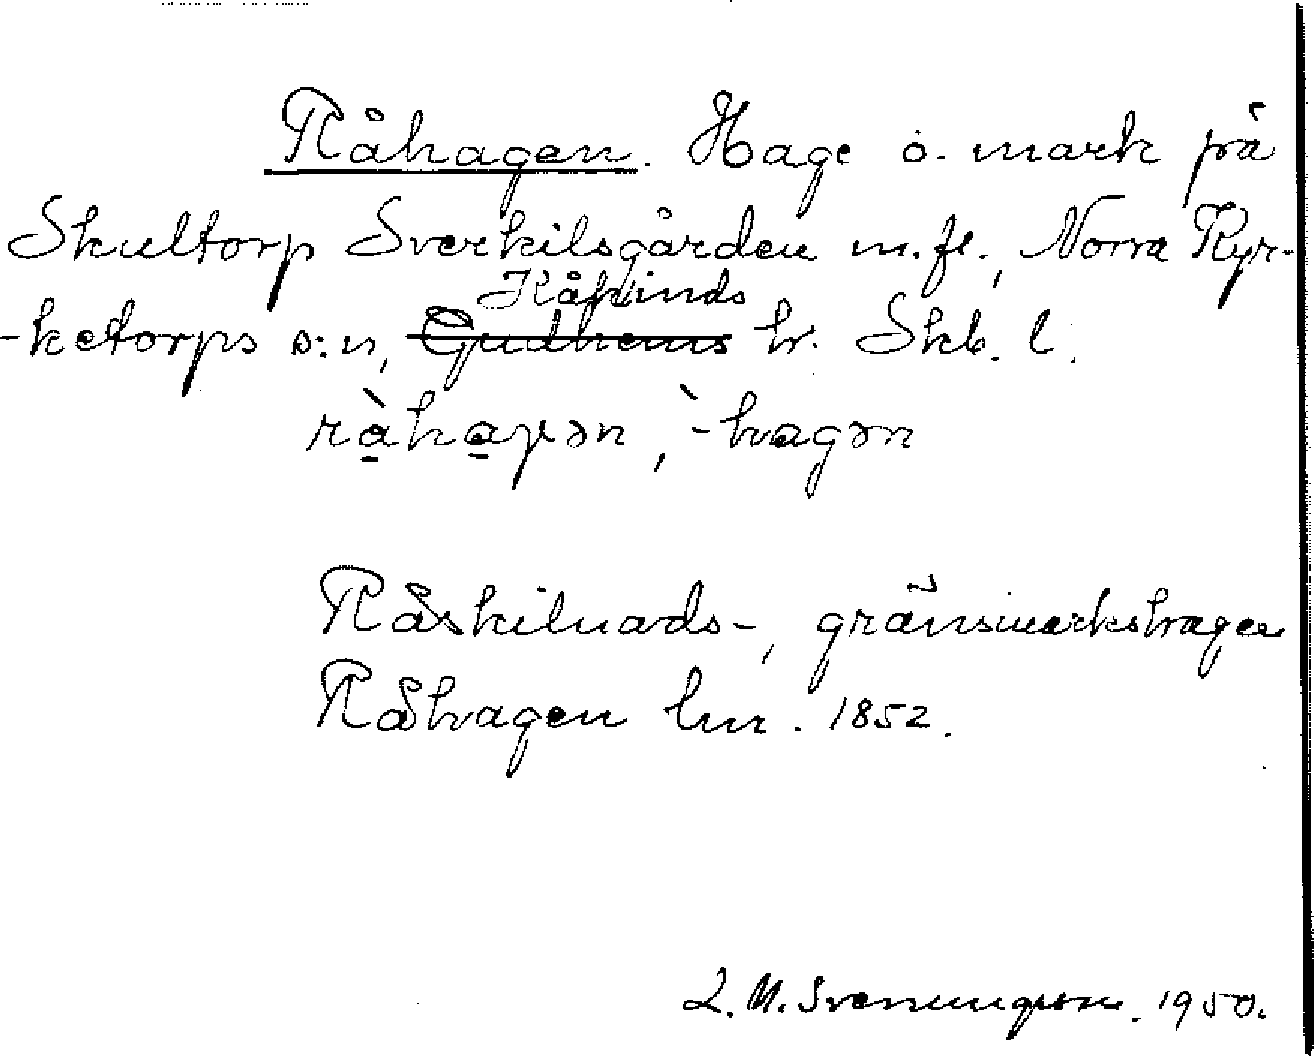 Råhagen. Hage o. mark på
Skultorp Sverkilsgården m.fl., Norra Kyr-
-ketorps s:n, Gudhems Kåkinds hr. Skb. l.
ràhaγən, `-hagən
Råskilnads-, gränsmarkshagen
Råhagen lm. 1852.
L. M. Svenungsson. 1950.